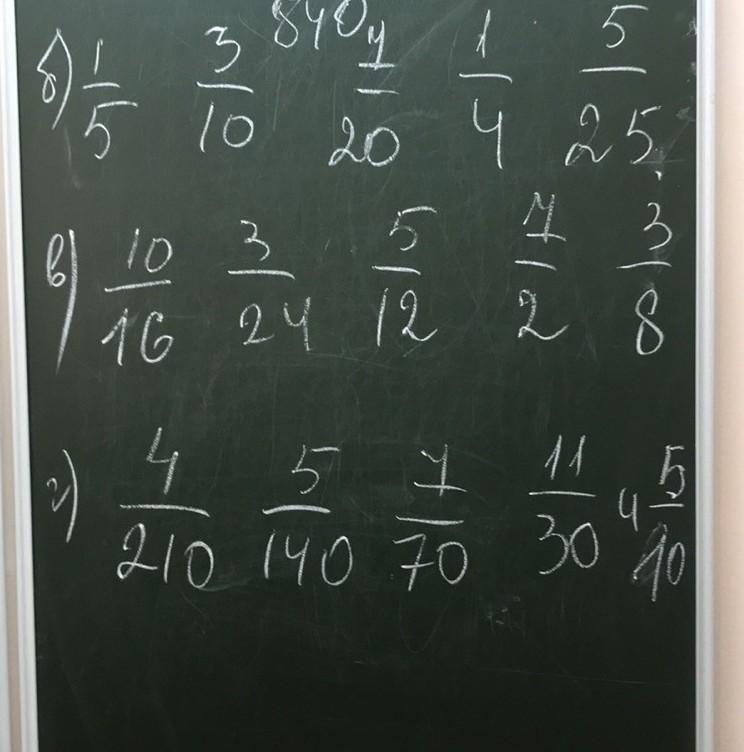 840
б) 1/5 3/10 7/20 1/4 5/25
в) 10/16 3/24 5/12 7/2 3/8
г) 4/210 5/140 7/70 11/30 и 5/10